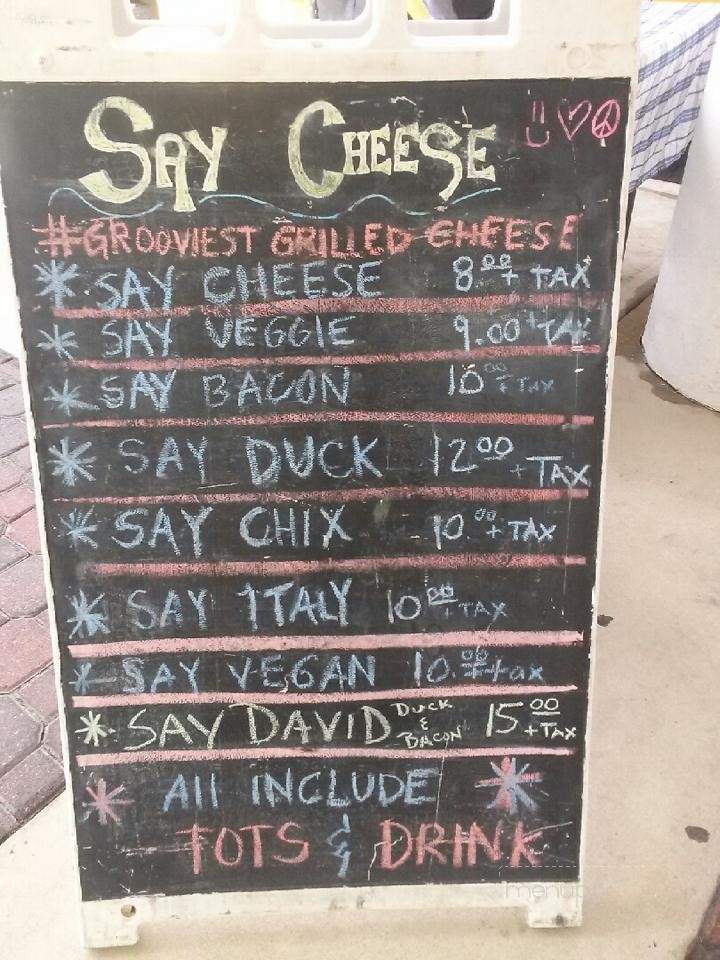 SAY CHEESE
#GROOVIEST GRILLED CHEESE
* SAY CHEESE 8.00 + TAX
* SAY VEGGIE 9.00 + TAX
* SAY BACON 10.00 + TAX
* SAY DUCK 12.00 + TAX
* SAY CHIX 10.00 + TAX
* SAY ITALY 10.00 + TAX
* SAY VEGAN 10.00 + tax
* SAY DAVID DUCK & BACON 15.00 + TAX
* All INCLUDE *
TOTS & DRINK